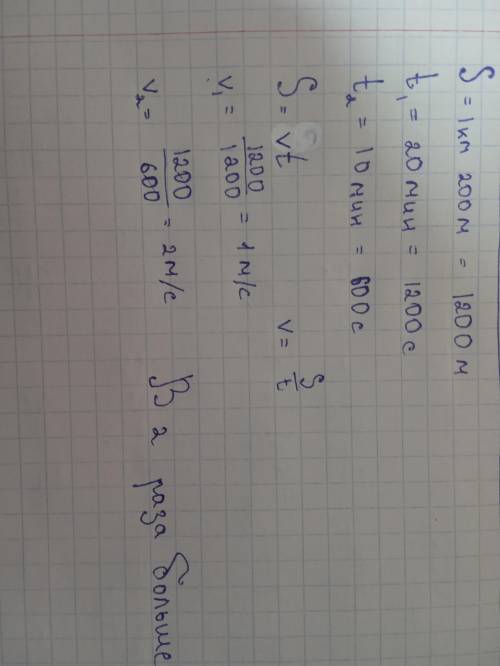 S = 1 км 200 м = 1200 м
t₁ = 20 мин = 1200 с
t₂ = 10 мин = 600 с
S = vt v = S/t
v₁ = 1200/1200 = 1 м/с
v₂ = 1200/600 = 2 м/с
В 2 раза больше